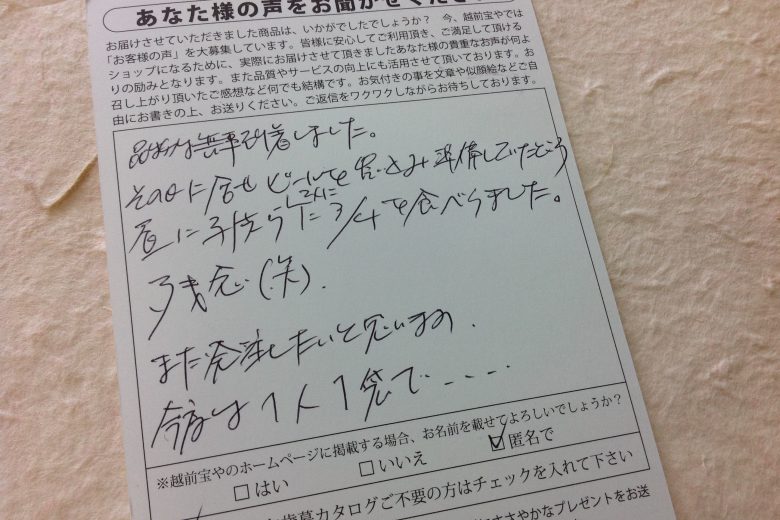 あなた様の声をお聞かせくださ
お届けさせていただきました商品は、いかがでしたでしょうか? 今、越前宝やでは
「お客様の声」を大募集しています。皆様に安心してご利用頂き、ご満足して頂ける
ショップになるために、実際にお届けさせて頂きましたあなた様の貴重なお声が何よ
りの励みとなります。また品質やサービスの向上にも活用させて頂いております。お
召し上がり頂いたご感想など何でも結構です。お気付きの事を文章や似顔絵などご自
由にお書きの上、お送りください。ご返信をワクワクしながらお待ちしております。
無事到着しました。
その日に合せビールを買いこみ準備していたところ
昼に子供ら2人に3/4を食べらました。
残念(笑).
また発注したいと思います.
今度は1人1袋で・・・・
※越前宝やのホームページに掲載する場合、お名前を載せてよろしいでしょうか?
□はい □いいえ ☑匿名で
歳暮カタログご不要の方はチェックを入れて下さい
ささやかなプレゼントをお送